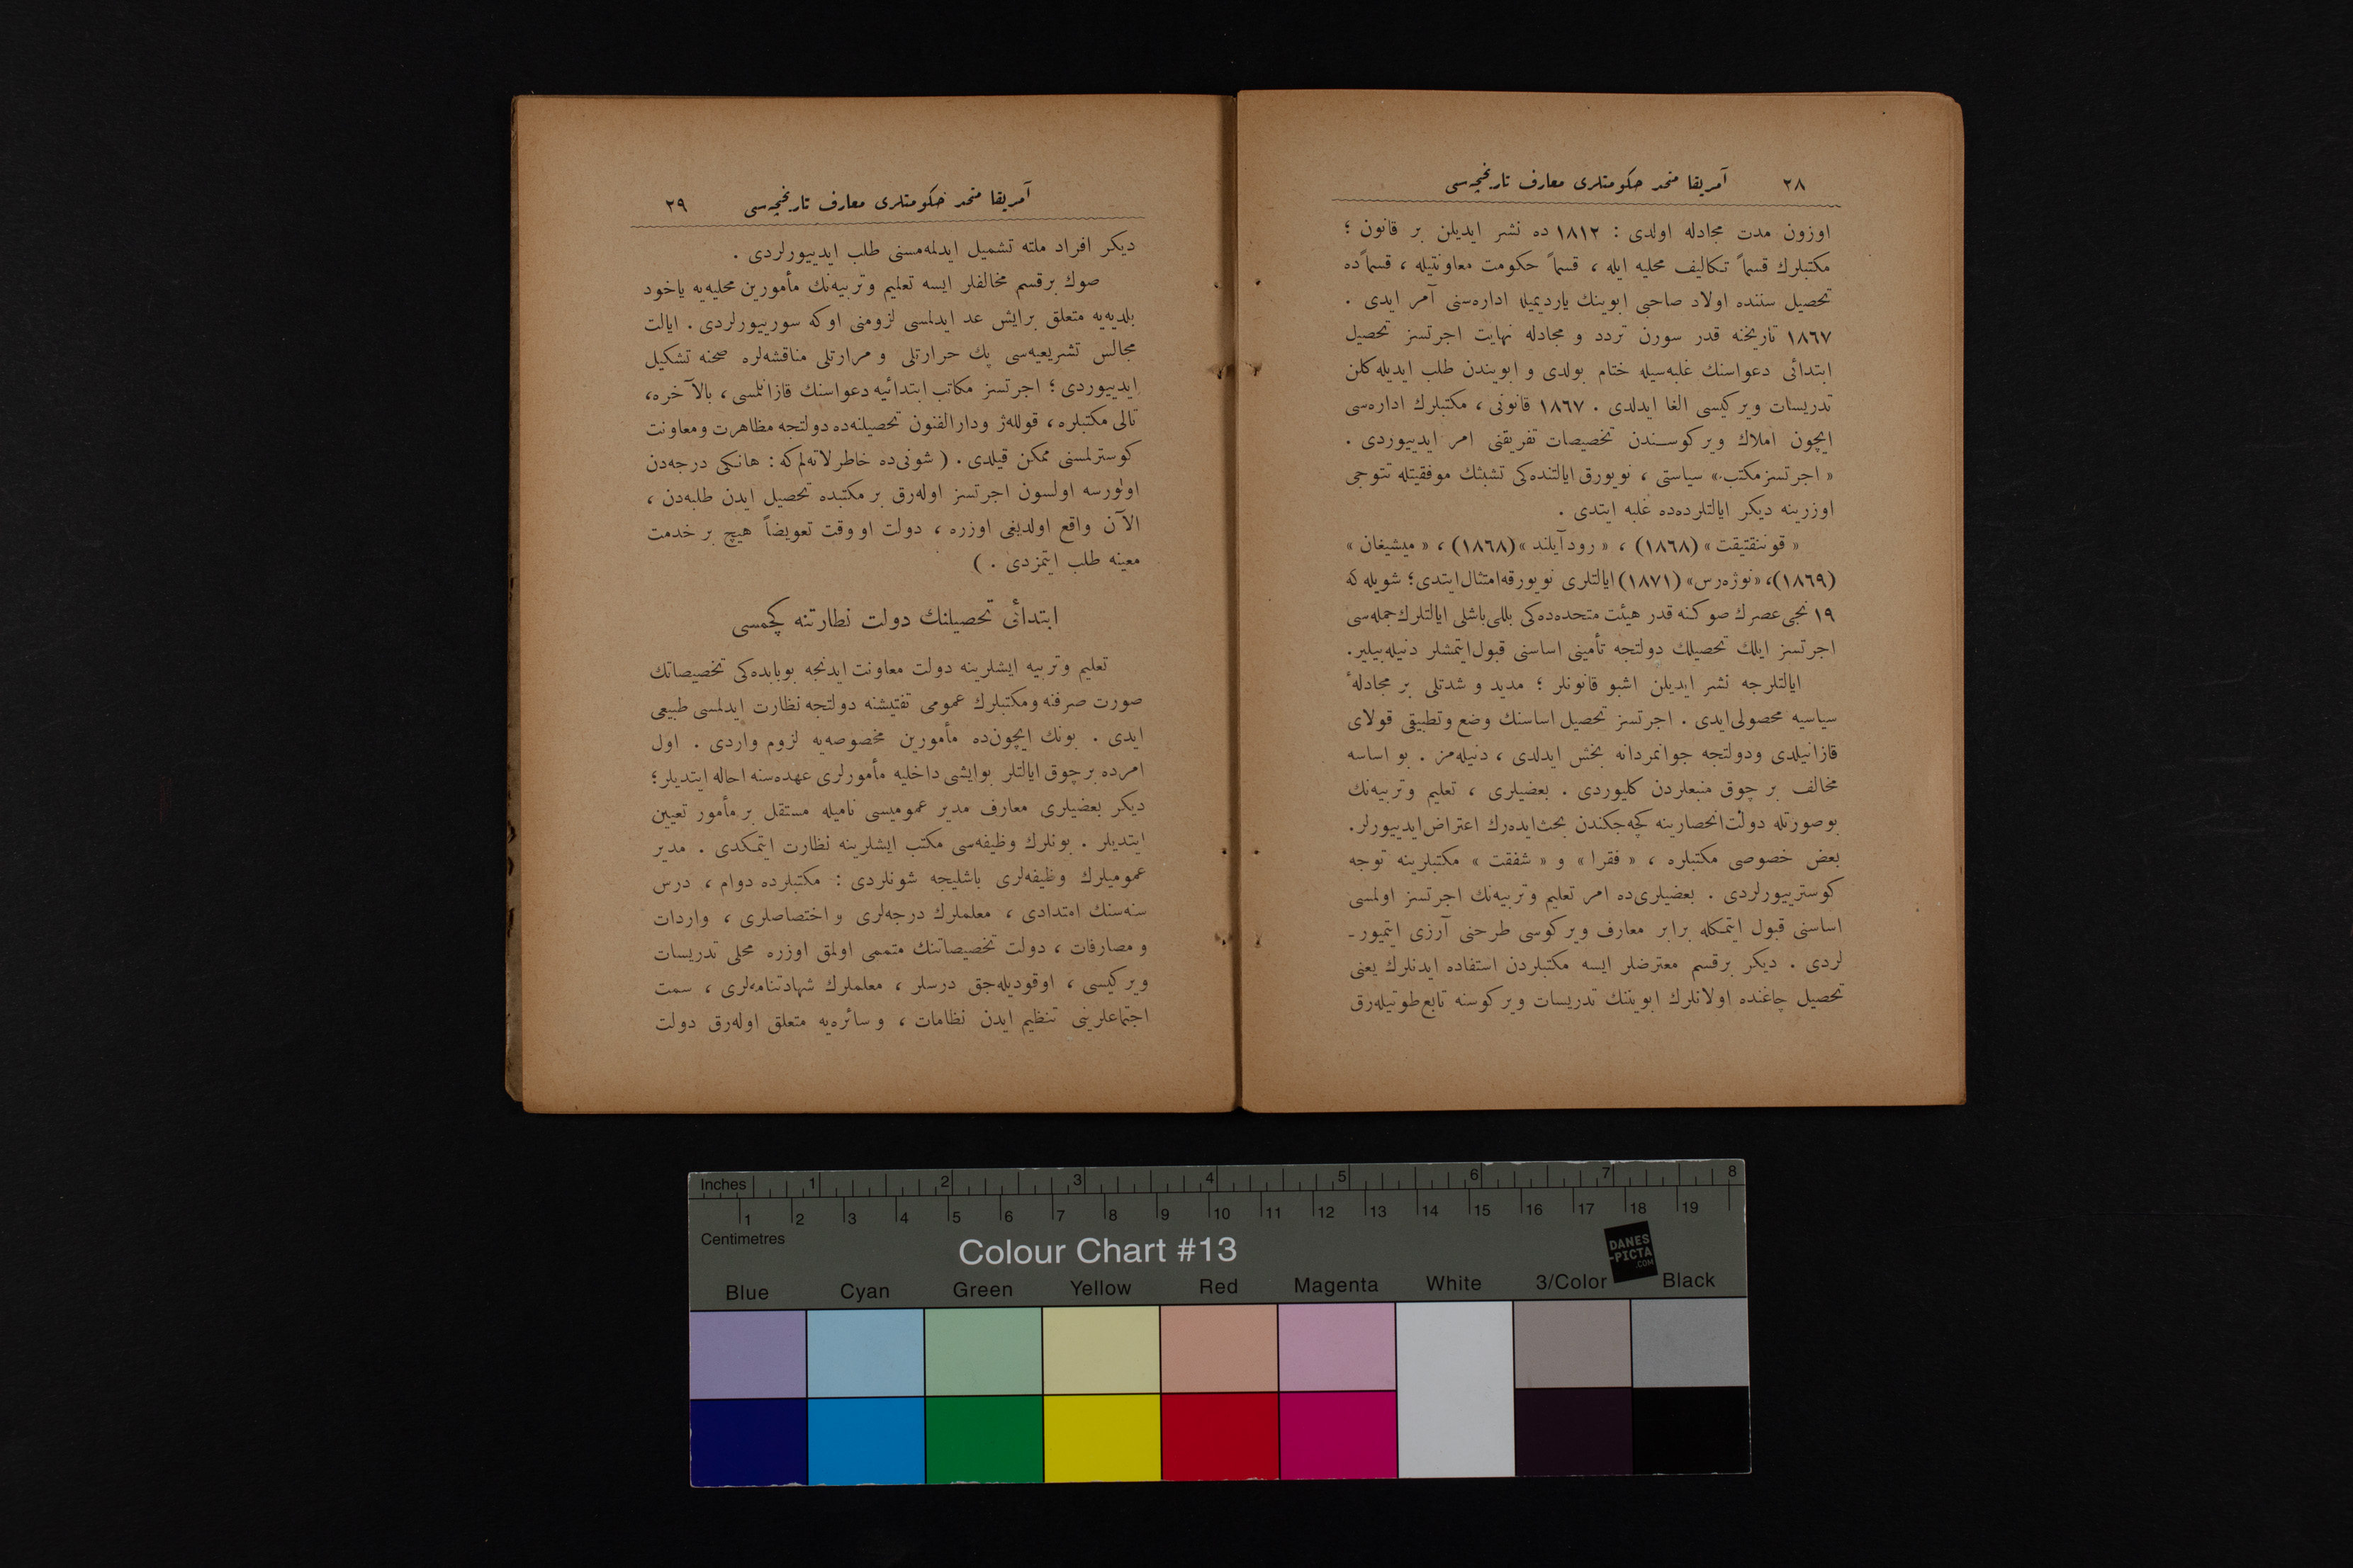 ٢٨ آمریقا متحد حكومتلری معارف تاریخچه‌سی
اوزون مدت مجادله اولدی : ١٨١٢ ده نشر ایدیلن بر قانون ؛
مكتبلرك قسماً تكالیف محلیه ایله ، قسماً حكومت معاونتیله ، قسماً ده
تحصیل سننده اولاد صاحبی ابوینك یاردیمیله اداره‌سنی آمر ایدی .
١٨٦٧ تاریخنه قدر سورن تردد و مجادله نهایت اجرتسز تحصیل
ابتدائی دعواسنك غلبه‌سیله ختام بولدی و ابویندن طلب ایدیله‌كلن
تدریسات ویركیسی الغا ایدلدی . ١٨٦٧ قانونی ، مكتبلرك اداره‌سی
ایچون املاك ویركوسندن تخصیصات تفریقنی امر ایدییوردی .
« اجرتسز مكتب » سیاستی ، نویورق ایالتنده‌كی تشبثك موفقیتله تتوجی
اوزرینه دیكر ایالتلرده‌ده غلبه ایتدی .
« قوننقتیقت » (١٨٦٨) ، « رودآیلند » (١٨٦٨) ، « میشیغان »
(١٨٦٩)، «نوژه‌رس» (١٨٧١) ایالتلری نویورقه امتثال ایتدی؛ شویله كه
١٩ نجی عصرك صوكنه قدر هیئت متحده‌ده‌كی بللی باشلی ایالتلرك جمله‌سی
اجرتسز ایلك تحصیلك دولتجه تأمینی اساسنی قبول ایتمشلر دنیله‌بیلیر.
ایالتلرجه نشر ایدیلن اشبو قانونلر ؛ مدید و شدتلی بر مجادلهٔ
سیاسیه محصولی ایدی . اجرتسز تحصیل اساسنك وضع وتطبیقی قولای
قازانیلدی ودولتجه جوانمردانه بخش ایدلدی ، دنیله‌مز . بو اساسه
مخالف بر چوق منبعلردن كلیوردی . بعضیلری ، تعلیم وتربیه‌نك
بوصورتله دولت انحصارینه كچه‌جكندن بحث ایده‌رك اعتراض ایدییورلر.
بعض خصوصی مكتبلره ، « فقرا » و « شفقت » مكتبلرینه توجه
كوسترییورلردی . بعضیلری‌ده امر تعلیم وتربیه‌نك اجرتسز اولمسی
اساسنی قبول ایتمكله برابر معارف ویركوسی طرحنی آرزی ایتمیور-
لردی . دیكر برقسم معترضلر ایسه مكتبلردن استفاده ایدنلرك یعنی
تحصیل چاغنده اولانلرك ابویننك تدریسات ویركوسنه تابع طوتیله‌رق
آمریقا متحد حكومتلری معارف تاریخچه‌سی ٢٩
دیكر افراد ملته تشمیل ایدلمه‌مسنی طلب ایدییورلردی .
صوك برقسم مخالفلر ایسه تعلیم وتربیه‌نك مأمورین محلیه‌یه یاخود
بلدیه‌یه متعلق برایش عد ایدلمسی لزومنی اوكه سورییورلردی . ایالت
مجالس تشریعیه‌سی پك حرارتلی و مرارتلی مناقشه‌لره صحنه تشكیل
ایدییوردی ؛ اجرتسز مكاتب ابتدائیه دعواسنك قازانلمسی ، بالآخره،
تالی مكتبلره ، قولله‌ژ ودارالفنون تحصیلنه‌ده دولتجه مظاهرت ومعاونت
كوسترلمسنی ممكن قیلدی . ( شونی‌ده خاطرلاته‌لم كه : هانكی درجه‌دن
اولورسه اولسون اجرتسز اوله‌رق بر مكتبده تحصیل ایدن طلبه‌دن ،
الآن واقع اولدیغی اوزره ، دولت او وقت تعویضاً هیچ بر خدمت
معینه طلب ایتمزدی . )
ابتدائی تحصیلنك دولت نظارتنه كچمسی
تعلیم وتربیه ایشلرینه دولت معاونت ایدنجه بوبابده‌كی تخصیصاتك
صورت صرفنه ومكتبلرك عمومی تفتیشنه دولتجه نظارت ایدلمسی طبیعی
ایدی . بونك ایچون‌ده مأمورین مخصوصه‌یه لزوم واردی . اول
امرده بر چوق ایالتلر بوایشی داخلیه مأمورلری عهده‌سنه احاله ایتدیلر؛
دیكر بعضیلری معارف مدیر عمومیسی نامیله مستقل بر مأمور تعیین
ایتدیلر . بونلرك وظیفه‌سی مكتب ایشلرینه نظارت ایتمكدی . مدیر
عمومیلرك وظیفه‌لری باشلیجه شونلردی : مكتبلرده دوام ، درس
سنه‌سنك امتدادی ، معلملرك درجه‌لری و اختصاصلری ، واردات
و مصارفات ، دولت تخصیصاتنك متممی اولمق اوزره محلی تدریسات
ویركیسی ، اوقودیله‌جق درسلر ، معلملرك شهادتنامه‌لری ، سمت
اجتماعلرینی تنظیم ایدن نظامات ، وسائره‌یه متعلق اوله‌رق دولت
Inches 1 2 3 4 5 6 7 8
1 2 3 4 5 6 7 8 9 10 11 12 13 14 15 16 17 18 19
Centimetres
Colour Chart #13
DANES
-PICTA
.COM
Blue Cyan Green Yellow Red Magenta White 3/Color Black